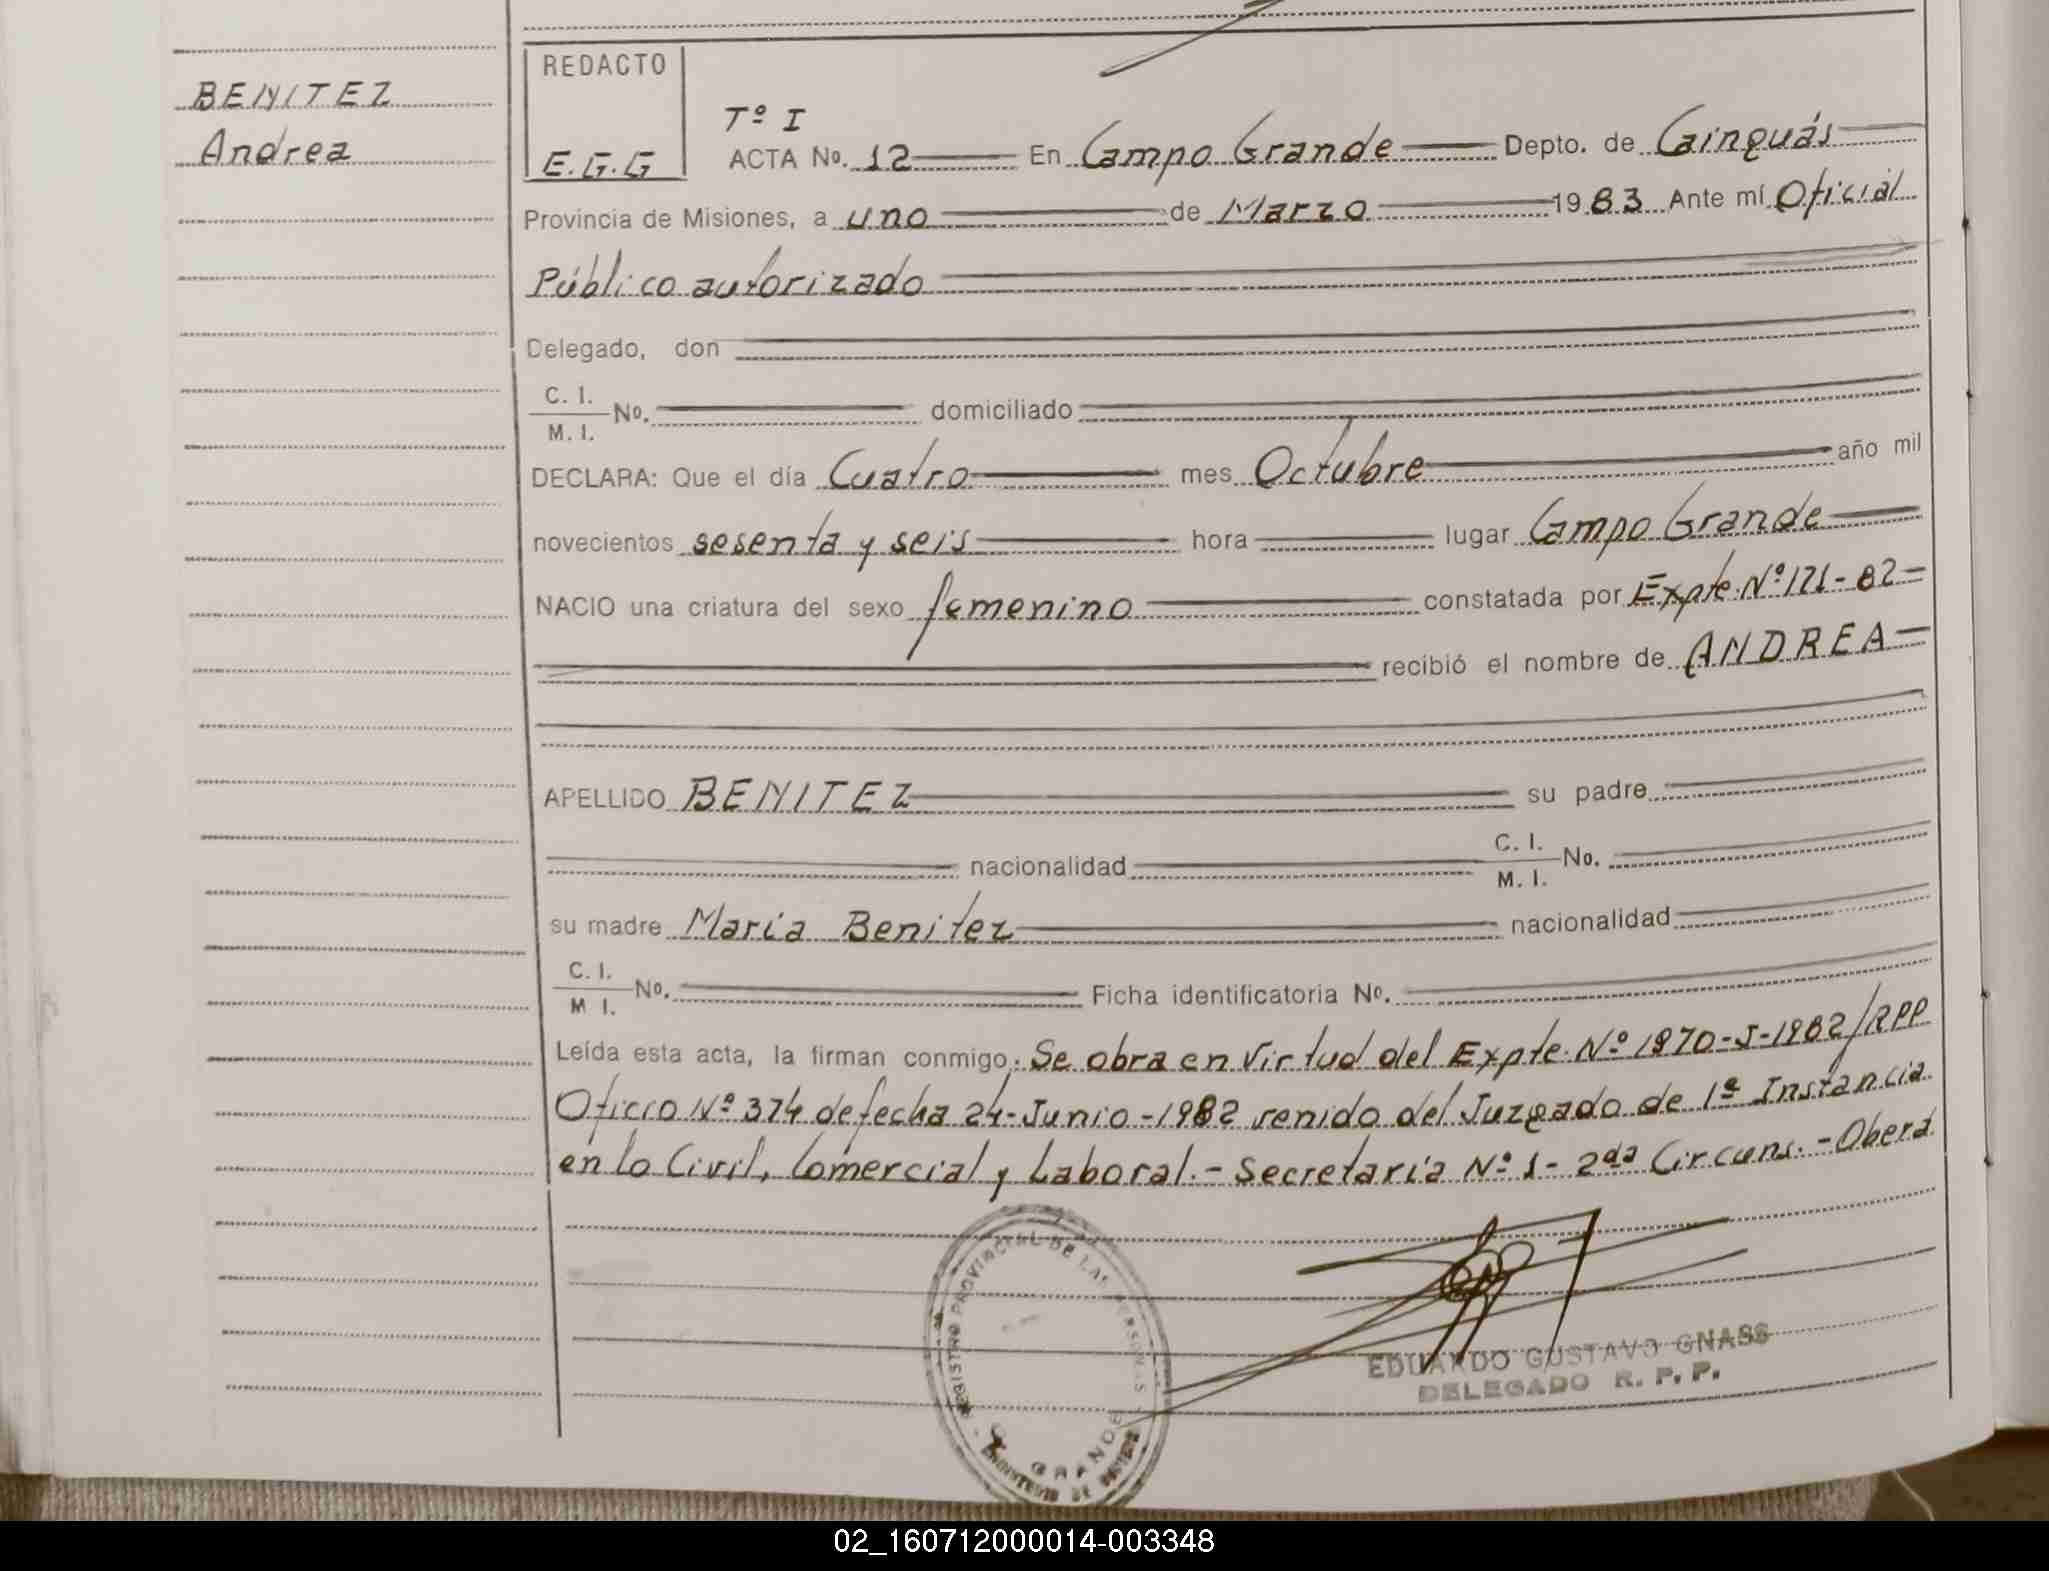 BENITEZ
Andrea
REDACTO
E.G.G
Tº I
ACTA No. 12 En Campo Grande Depto. de Cainguás
Provincia de Misiones, a uno de Marzo 1983 Ante mí Oficial
Público autorizado
Delegado, don
C. I.
M. I.
No. domiciliado
DECLARA: Que el día Cuatro mes Octubre año mil
novecientos sesenta y seis hora lugar Campo Grande
NACIO una criatura del sexo femenino constatada por Expte. Nº 171-82-
recibió el nombre de ANDREA
APELLIDO BENITEZ su padre
nacionalidad C. I.
M. I.
No.
su madre María Benitez nacionalidad
C. I.
M I.
No. Ficha identificatoria No.
Leída esta acta, la firman conmigo: Se obra en virtud del Expte. Nº 1870-J-1982/RPP
Oficio Nº 374 de fecha 24-Junio-1982 venido del Juzgado de 1ª Instancia
en lo Civil, Comercial y Laboral.- Secretaría Nº 1- 2da Circuns.- Oberá
REGISTRO PROVINCIAL DE LAS PERSONAS
GRANDE
MINISTERIO DE
EDUARDO GUSTAVO GNASS
DELEGADO R. P. P.
02_160712000014-003348